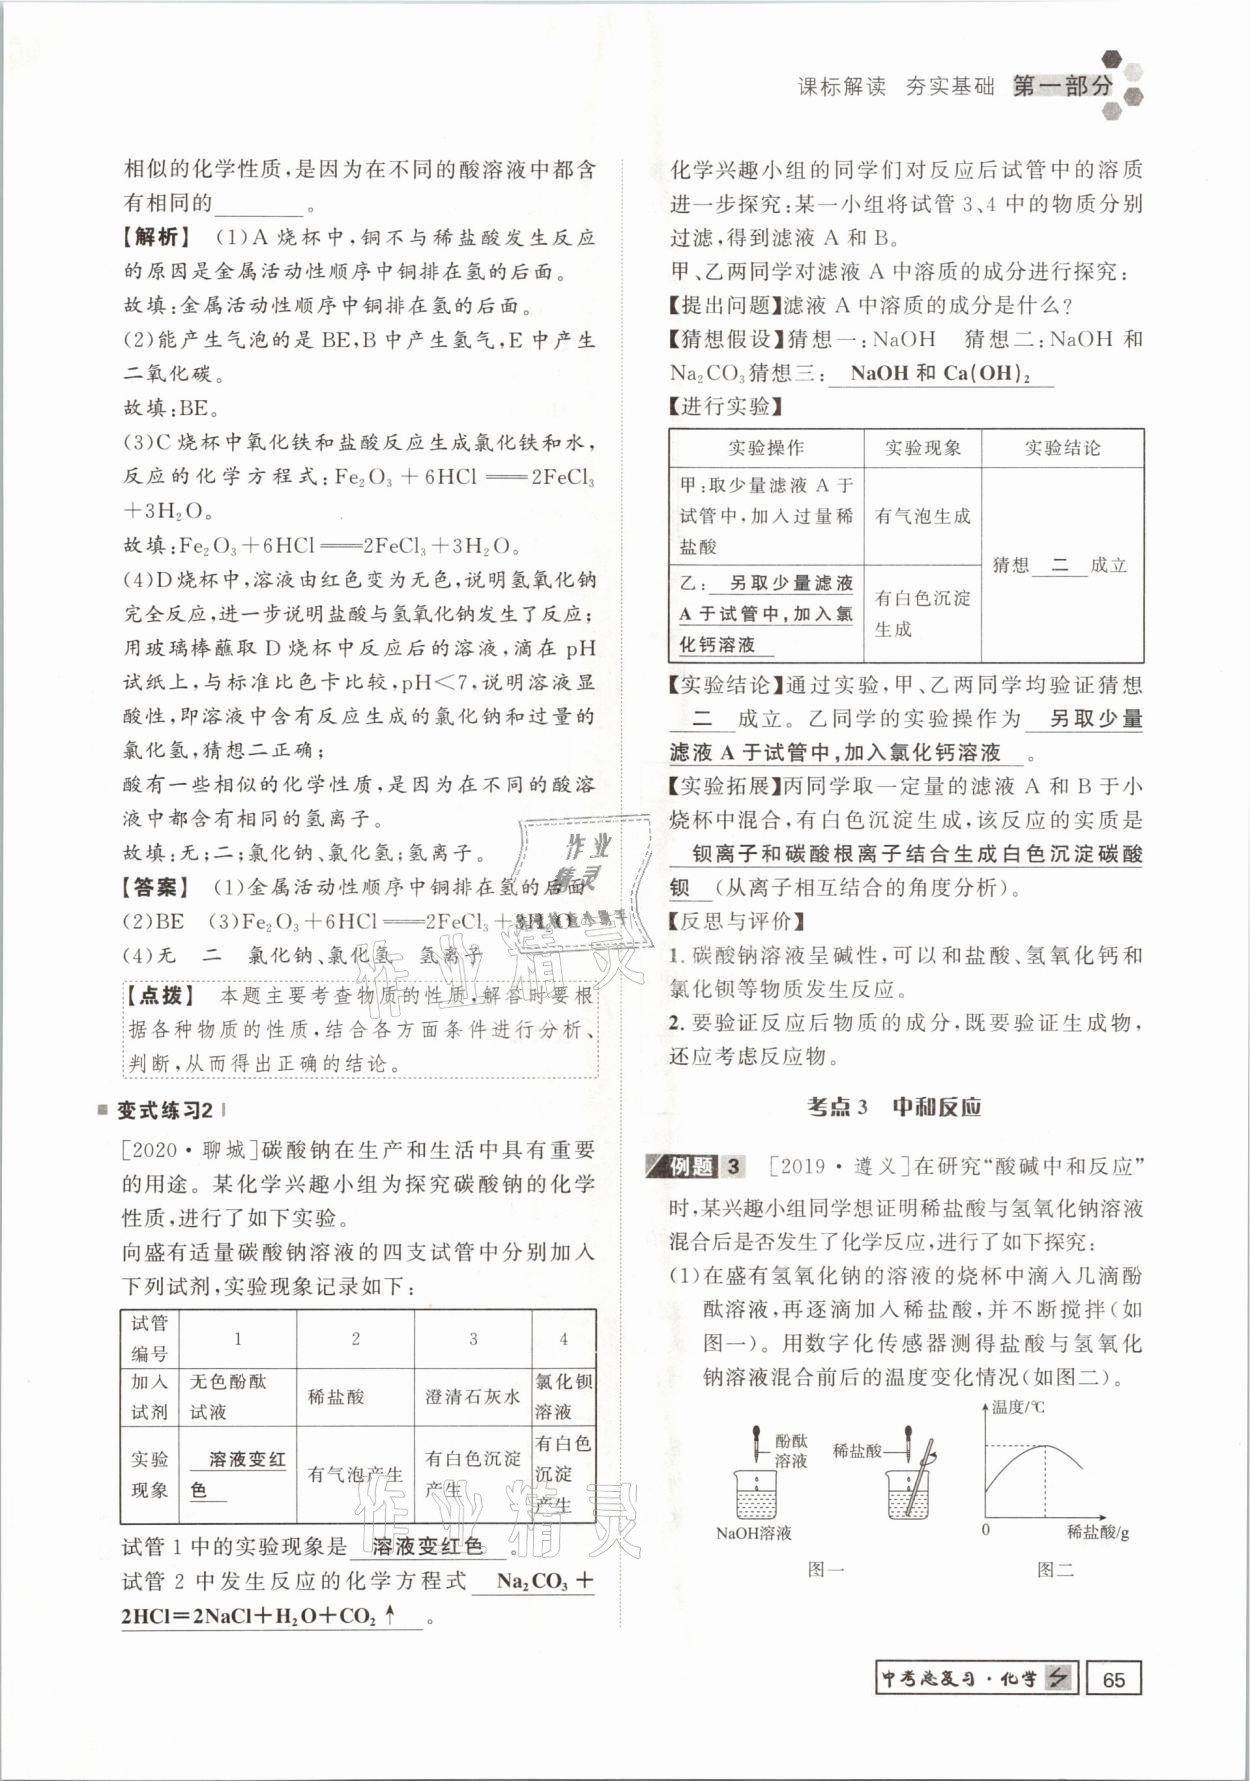 课标解读 夯实基础 第一部分
相似的化学性质,是因为在不同的酸溶液中都含
有相同的________。
【解析】 (1)A 烧杯中,铜不与稀盐酸发生反应
的原因是金属活动性顺序中铜排在氢的后面。
故填:金属活动性顺序中铜排在氢的后面。
(2)能产生气泡的是 BE,B 中产生氢气,E 中产生
二氧化碳。
故填:BE。
(3)C 烧杯中氧化铁和盐酸反应生成氯化铁和水,
反应的化学方程式:Fe₂O₃+6HCl══2FeCl₃
+3H₂O。
故填:Fe₂O₃+6HCl══2FeCl₃+3H₂O。
(4)D烧杯中,溶液由红色变为无色,说明氢氧化钠
完全反应,进一步说明盐酸与氢氧化钠发生了反应;
用玻璃棒蘸取 D 烧杯中反应后的溶液,滴在 pH
试纸上,与标准比色卡比较,pH<7,说明溶液显
酸性,即溶液中含有反应生成的氯化钠和过量的
氯化氢,猜想二正确;
酸有一些相似的化学性质,是因为在不同的酸溶
液中都含有相同的氢离子。
故填:无;二;氯化钠、氯化氢;氢离子。
【答案】 (1)金属活动性顺序中铜排在氢的后面
(2)BE (3)Fe₂O₃+6HCl══2FeCl₃+3H₂O
(4)无 二 氯化钠、氯化氢 氢离子
【点拨】 本题主要考查物质的性质,解答时要根
据各种物质的性质,结合各方面条件进行分析、
判断,从而得出正确的结论。
变式练习2
[2020·聊城]碳酸钠在生产和生活中具有重要
的用途。某化学兴趣小组为探究碳酸钠的化学
性质,进行了如下实验。
向盛有适量碳酸钠溶液的四支试管中分别加入
下列试剂,实验现象记录如下:
试管编号 1 2 3 4
加入试剂 无色酚酞试液 稀盐酸 澄清石灰水 氯化钡溶液
实验现象 溶液变红色 有气泡产生 有白色沉淀产生 有白色沉淀产生
试管 1 中的实验现象是 溶液变红色 。
试管 2 中发生反应的化学方程式 Na₂CO₃+
2HCl=2NaCl+H₂O+CO₂↑ 。
化学兴趣小组的同学们对反应后试管中的溶质
进一步探究:某一小组将试管 3、4 中的物质分别
过滤,得到滤液 A 和 B。
甲、乙两同学对滤液 A 中溶质的成分进行探究:
【提出问题】滤液 A 中溶质的成分是什么?
【猜想假设】猜想一:NaOH 猜想二:NaOH 和
Na₂CO₃猜想三: NaOH 和 Ca(OH)₂
【进行实验】
实验操作 实验现象 实验结论
甲:取少量滤液 A 于试管中,加入过量稀盐酸 有气泡生成 猜想 二 成立
乙: 另取少量滤液 A 于试管中,加入氯化钙溶液 有白色沉淀生成
【实验结论】通过实验,甲、乙两同学均验证猜想
二 成立。乙同学的实验操作为 另取少量
滤液 A 于试管中,加入氯化钙溶液 。
【实验拓展】丙同学取一定量的滤液 A 和 B 于小
烧杯中混合,有白色沉淀生成,该反应的实质是
钡离子和碳酸根离子结合生成白色沉淀碳酸
钡 (从离子相互结合的角度分析)。
【反思与评价】
1.碳酸钠溶液呈碱性,可以和盐酸、氢氧化钙和
氯化钡等物质发生反应。
2.要验证反应后物质的成分,既要验证生成物,
还应考虑反应物。
考点 3 中和反应
例题 3 [2019·遵义]在研究“酸碱中和反应”
时,某兴趣小组同学想证明稀盐酸与氢氧化钠溶液
混合后是否发生了化学反应,进行了如下探究:
(1)在盛有氢氧化钠的溶液的烧杯中滴入几滴酚
酞溶液,再逐滴加入稀盐酸,并不断搅拌(如
图一)。用数字化传感器测得盐酸与氢氧化
钠溶液混合前后的温度变化情况(如图二)。
酚酞
溶液
稀盐酸
NaOH溶液
图一
温度/℃
0
稀盐酸/g
图二
作业
精灵
作业精灵
作业精灵
中考总复习·化学
65